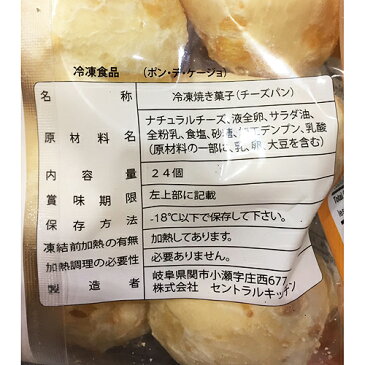 冷凍食品 (ポン・デ・ケージョ)
名称 冷凍焼き菓子(チーズパン)
原材料名 ナチュラルチーズ、液全卵、サラダ油、
全粉乳、食塩、砂糖、加工デンプン、乳酸
(原材料の一部に、乳、卵、大豆を含む)
内容量 24個
賞味期限 左上部に記載
保存方法 -18℃以下で保存して下さい。
凍結前加熱の有無 加熱してあります。
加熱調理の必要性 必要ありません。
製造者 岐阜県関市小瀬字庄西677
株式会社 セントラルキッチン